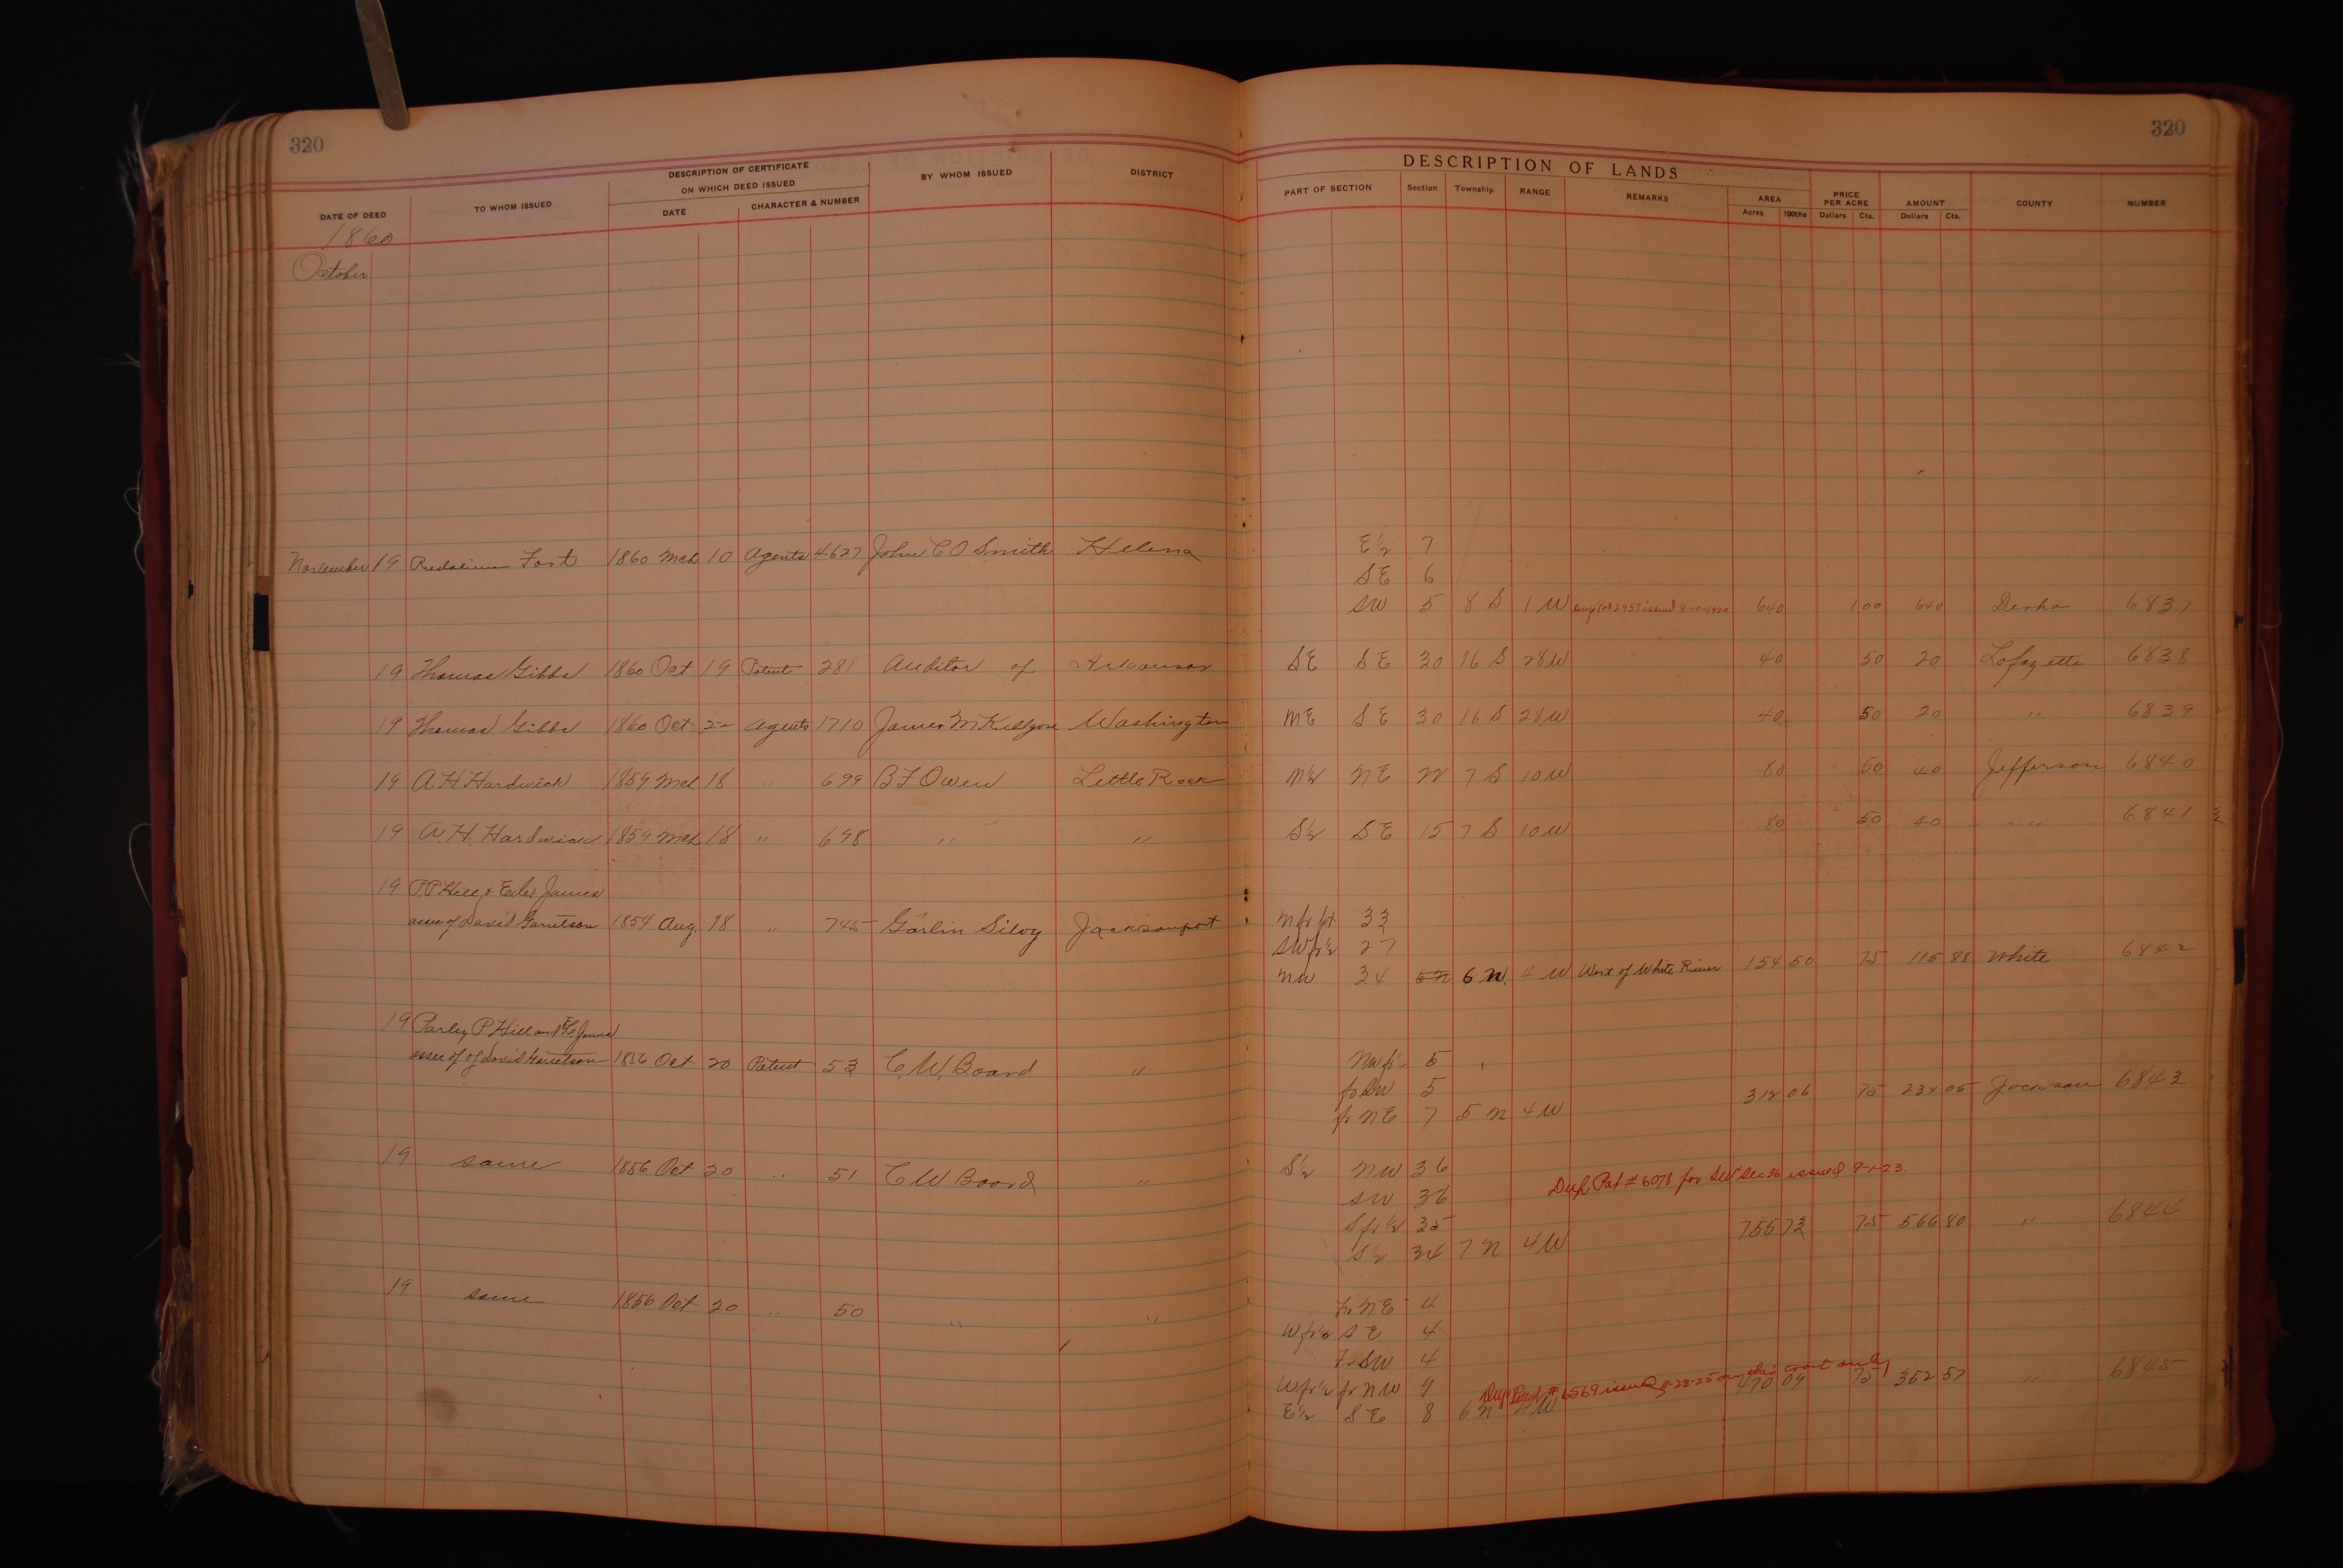 320
320
DESCRIPTION OF LANDS
DATE OF DEED TO WHOM ISSUED DESCRIPTION OF CERTIFICATE ON WHICH DEED ISSUED DATE CHARACTER & NUMBER BY WHOM ISSUED DISTRICT PART OF SECTION Section Township RANGE REMARKS AREA Acres 100ths PRICE PER ACRE Dollars Cts. AMOUNT Dollars Cts. COUNTY NUMBER
1860
October
November 19 Fort 1860 Mch 10 Agents 4627 John C O Smith Helena E½ 7
SE 6
SW 5 8 S 1 W 640 1 00 640 Desha 6837
19 Thomas Gibbs 1860 Oct 19 Patent 281 Auditor of Arkansas SE SE 30 16 S 28 W 40 50 20 Lafayette 6838
19 Thomas Gibbs 1860 Oct 22 Agents 1710 James M Killgore Washington NE SE 30 16 S 28 W 40 50 20 " 6839
19 A H Hardwick 1859 Mch 18 " 699 B F Owen Little Rock N½ NE 22 7 S 10 W 80 50 40 Jefferson 6840
19 A. H. Hardwick 1859 Mch 18 " 698 " " S½ SE 15 7 S 10 W 80 50 40 " 6841
19 P. P Hill & James
assee of David Garretson 1854 Aug. 18 " 745 Garlin Silvy Jacksonport N fr pt 33
SW fr ½ 27
NW 34 5 N 6 N. 4 W West of White River 154 50 75 115 88 White 6842
19 Parley P Hill and E C James
assee of of David Garretson 1856 Oct 20 Patent 53 C. W. Board " NW fr ½ 5
fr SW 5
fr NE 7 5 N 4 W 312 06 75 234 05 Jackson 6843
19 same 1856 Oct 20 " 51 C W Board " S½ NW 36
Dup Pat # 6078 for SW Sec 36 issued 9-1-23.
SW 36
S fr ½ 35
S½ 34 7 N 4 W 755 73 75 566 80 " 6844
19 same 1856 Oct 20 " 50 " " fr NE 4
W fr ½ SE 4
Fr SW 4
W fr ½ fr NW 9 Dup Deed # 6569 issued 9-28-25 on this tract only 470 09 75 352 57 " 6845
E½ SE 8 6 N 4 W